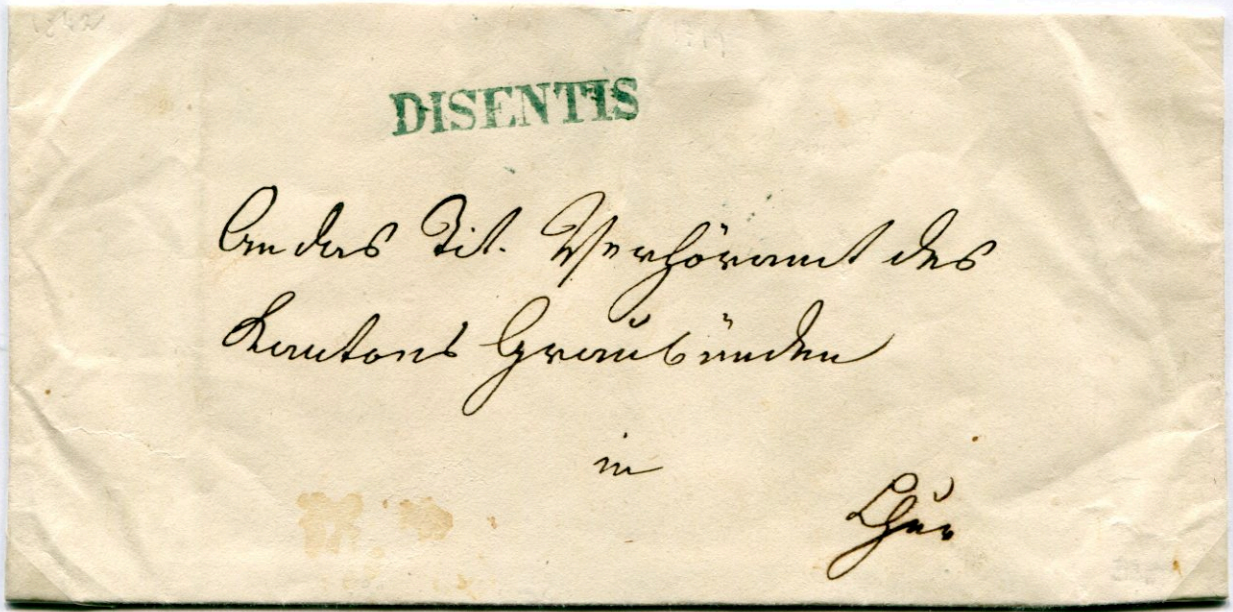 1842
DISENTIS
An das Tit. Verhöramt des
Kantons Graubünden
in
Chur